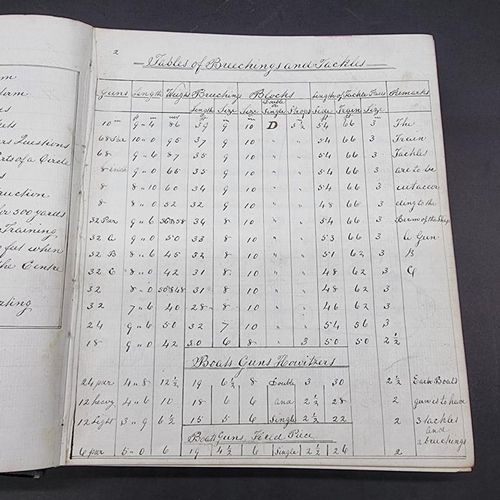 am
dam
s
ets
rs Questions
rts of a Circle
ruction
for 500 yards
Training
feet when
the Centre
ating
2
Tables of Breechings and Tackles
Guns Length Weight Breeching Blocks Length of Tackle Falls Remarks
Length Size Size Double or Single Straps Side Train Size
10 9 " 4 86 39 9 10 D 3½ 54 66 3 The
68 Par 10 " 0 95 37 9 10 " " 54 66 3 Train
68 9 " 6 87 35 9 10 " " 54 66 3 Tackles
8 inch 9 " 0 65 35 9 10 " " 54 66 3 are to be
8 8 " 10 60 34 9 10 " " 54 66 3 cut accor
8 8 " 0 52 32 9 10 " " 48 66 3 ding to the
32 Par 9 " 6 56&58 34 8 10 " " 54 66 3 Beam of the Ship
32 A 9 " 0 50 33 8 10 " " 53 66 3 A Gun
32 B 8 " 6 45 32 8 10 " " 51 62 3 B
32 C 8 " 0 42 31 8 10 " " 48 62 3 C
32 8 " 0 50&48 31 8 10 " " 48 62 3
32 7 " 6 40 28 8 10 " " 46 62 3
24 9 " 6 50 32 7 10 " " 54 56 3
18 9 " 0 42 30 6 8 " 3 50 50 2½
Boats Guns Howitzers
24 par 4 " 8 12½ 19 6½ 8 Double 3 30 2½ Each Boats
12 heavy 4 " 6 10 18 6 6 and 2½ 28 2 gun is to have
12 light 3 " 9 6½ 15 5 6 Single 2½ 22 2 3 tackles
and
2 breechings
Boats Guns Field Piece
6 par 5 " 0 6 19 4½ 6 Single 2½ 26 2